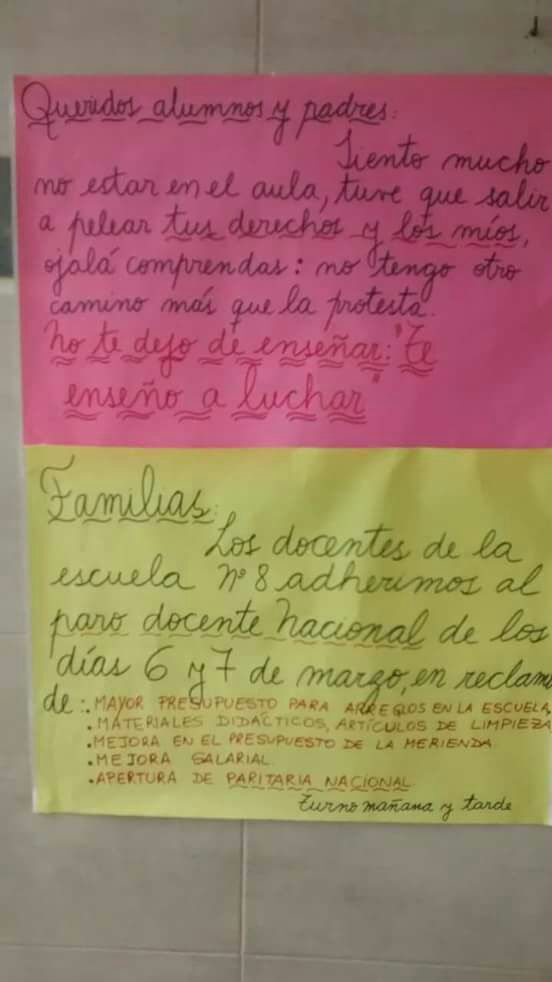 Queridos alumnos y padres:
Siento mucho
no estar en el aula, tuve que salir
a pelear tus derechos y los míos,
ojalá comprendas: no tengo otro
camino más que la protesta.
No te dejo de enseñar: "Te
enseño a luchar"
Familias:
Los docentes de la
escuela Nº 8 adherimos al
paro docente Nacional de los
días 6 y 7 de marzo, en reclam
de:. MAYOR PRESUPUESTO PARA ARREGLOS EN LA ESCUELA,
. MATERIALES DIDÁCTICOS, ARTÍCULOS DE LIMPIEZA
. MEJORA EN EL PRESUPUESTO DE LA MERIENDA.
. MEJORA SALARIAL.
. APERTURA DE PARITARIA NACIONAL.
turno mañana y tarde